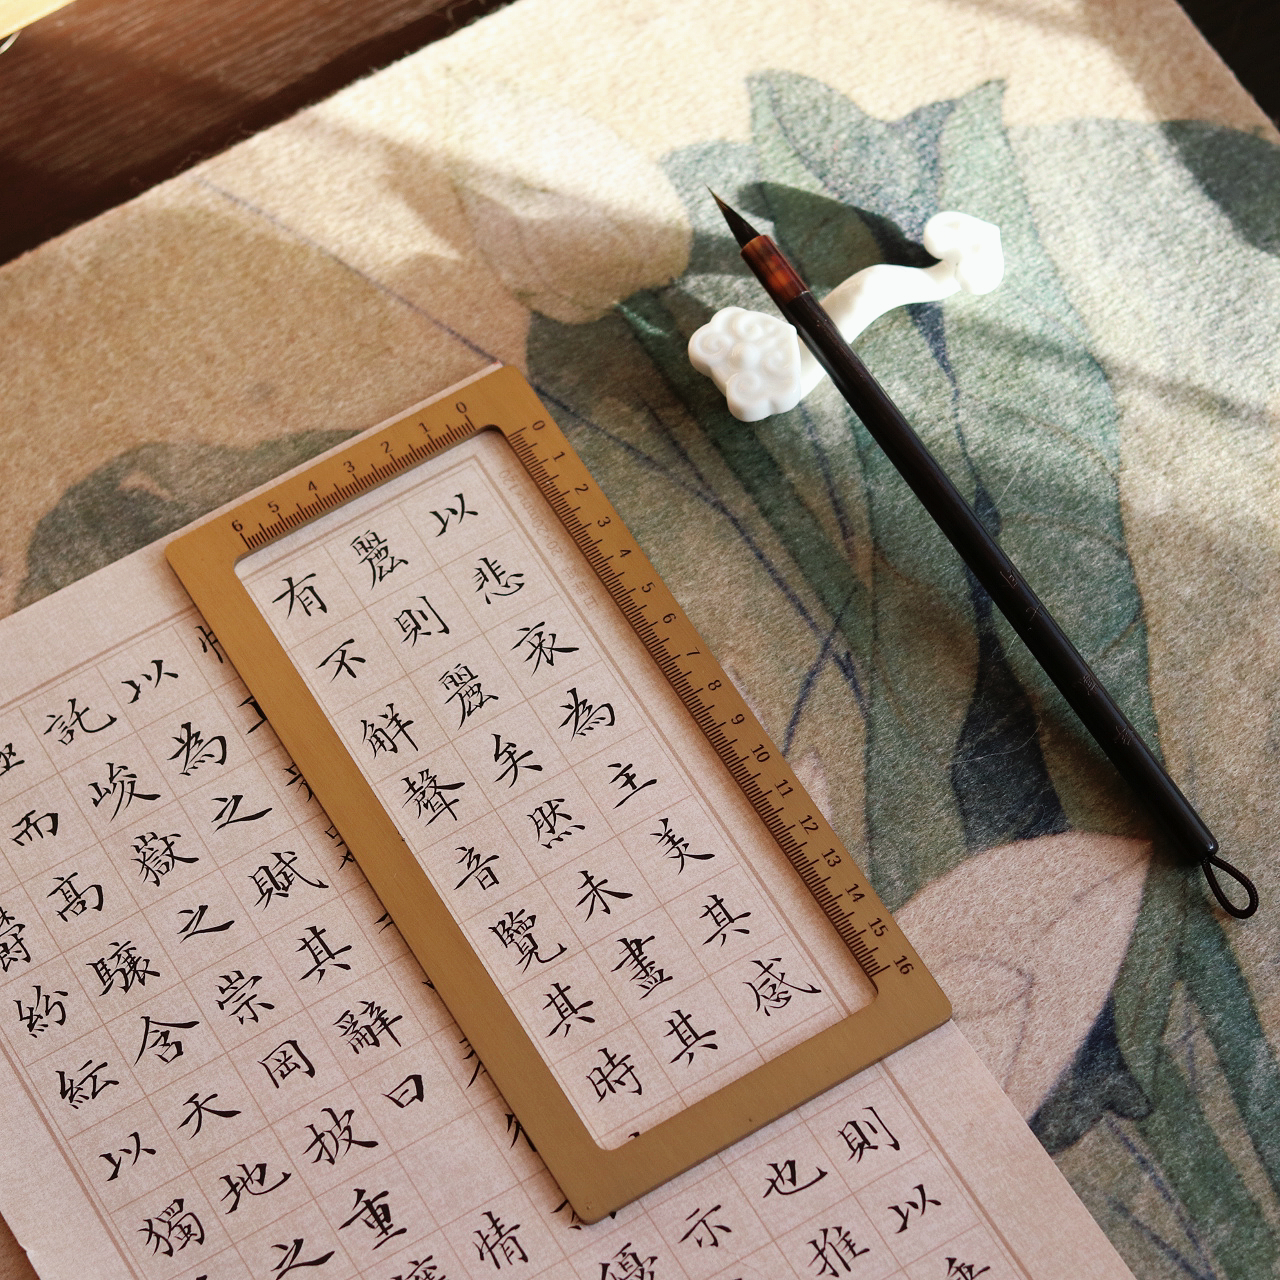 以悲哀為主美其感則以
麗則麗矣然未盡其也推
有不解聲音覽其時示
優
以為之賦其辭曰情
託峻嶽之崇岡披重
而高驤含天地之
紛紜以獨
0 1 2 3 4 5 6
0 1 2 3 4 5 6 7 8 9 10 11 12 13 14 15 16